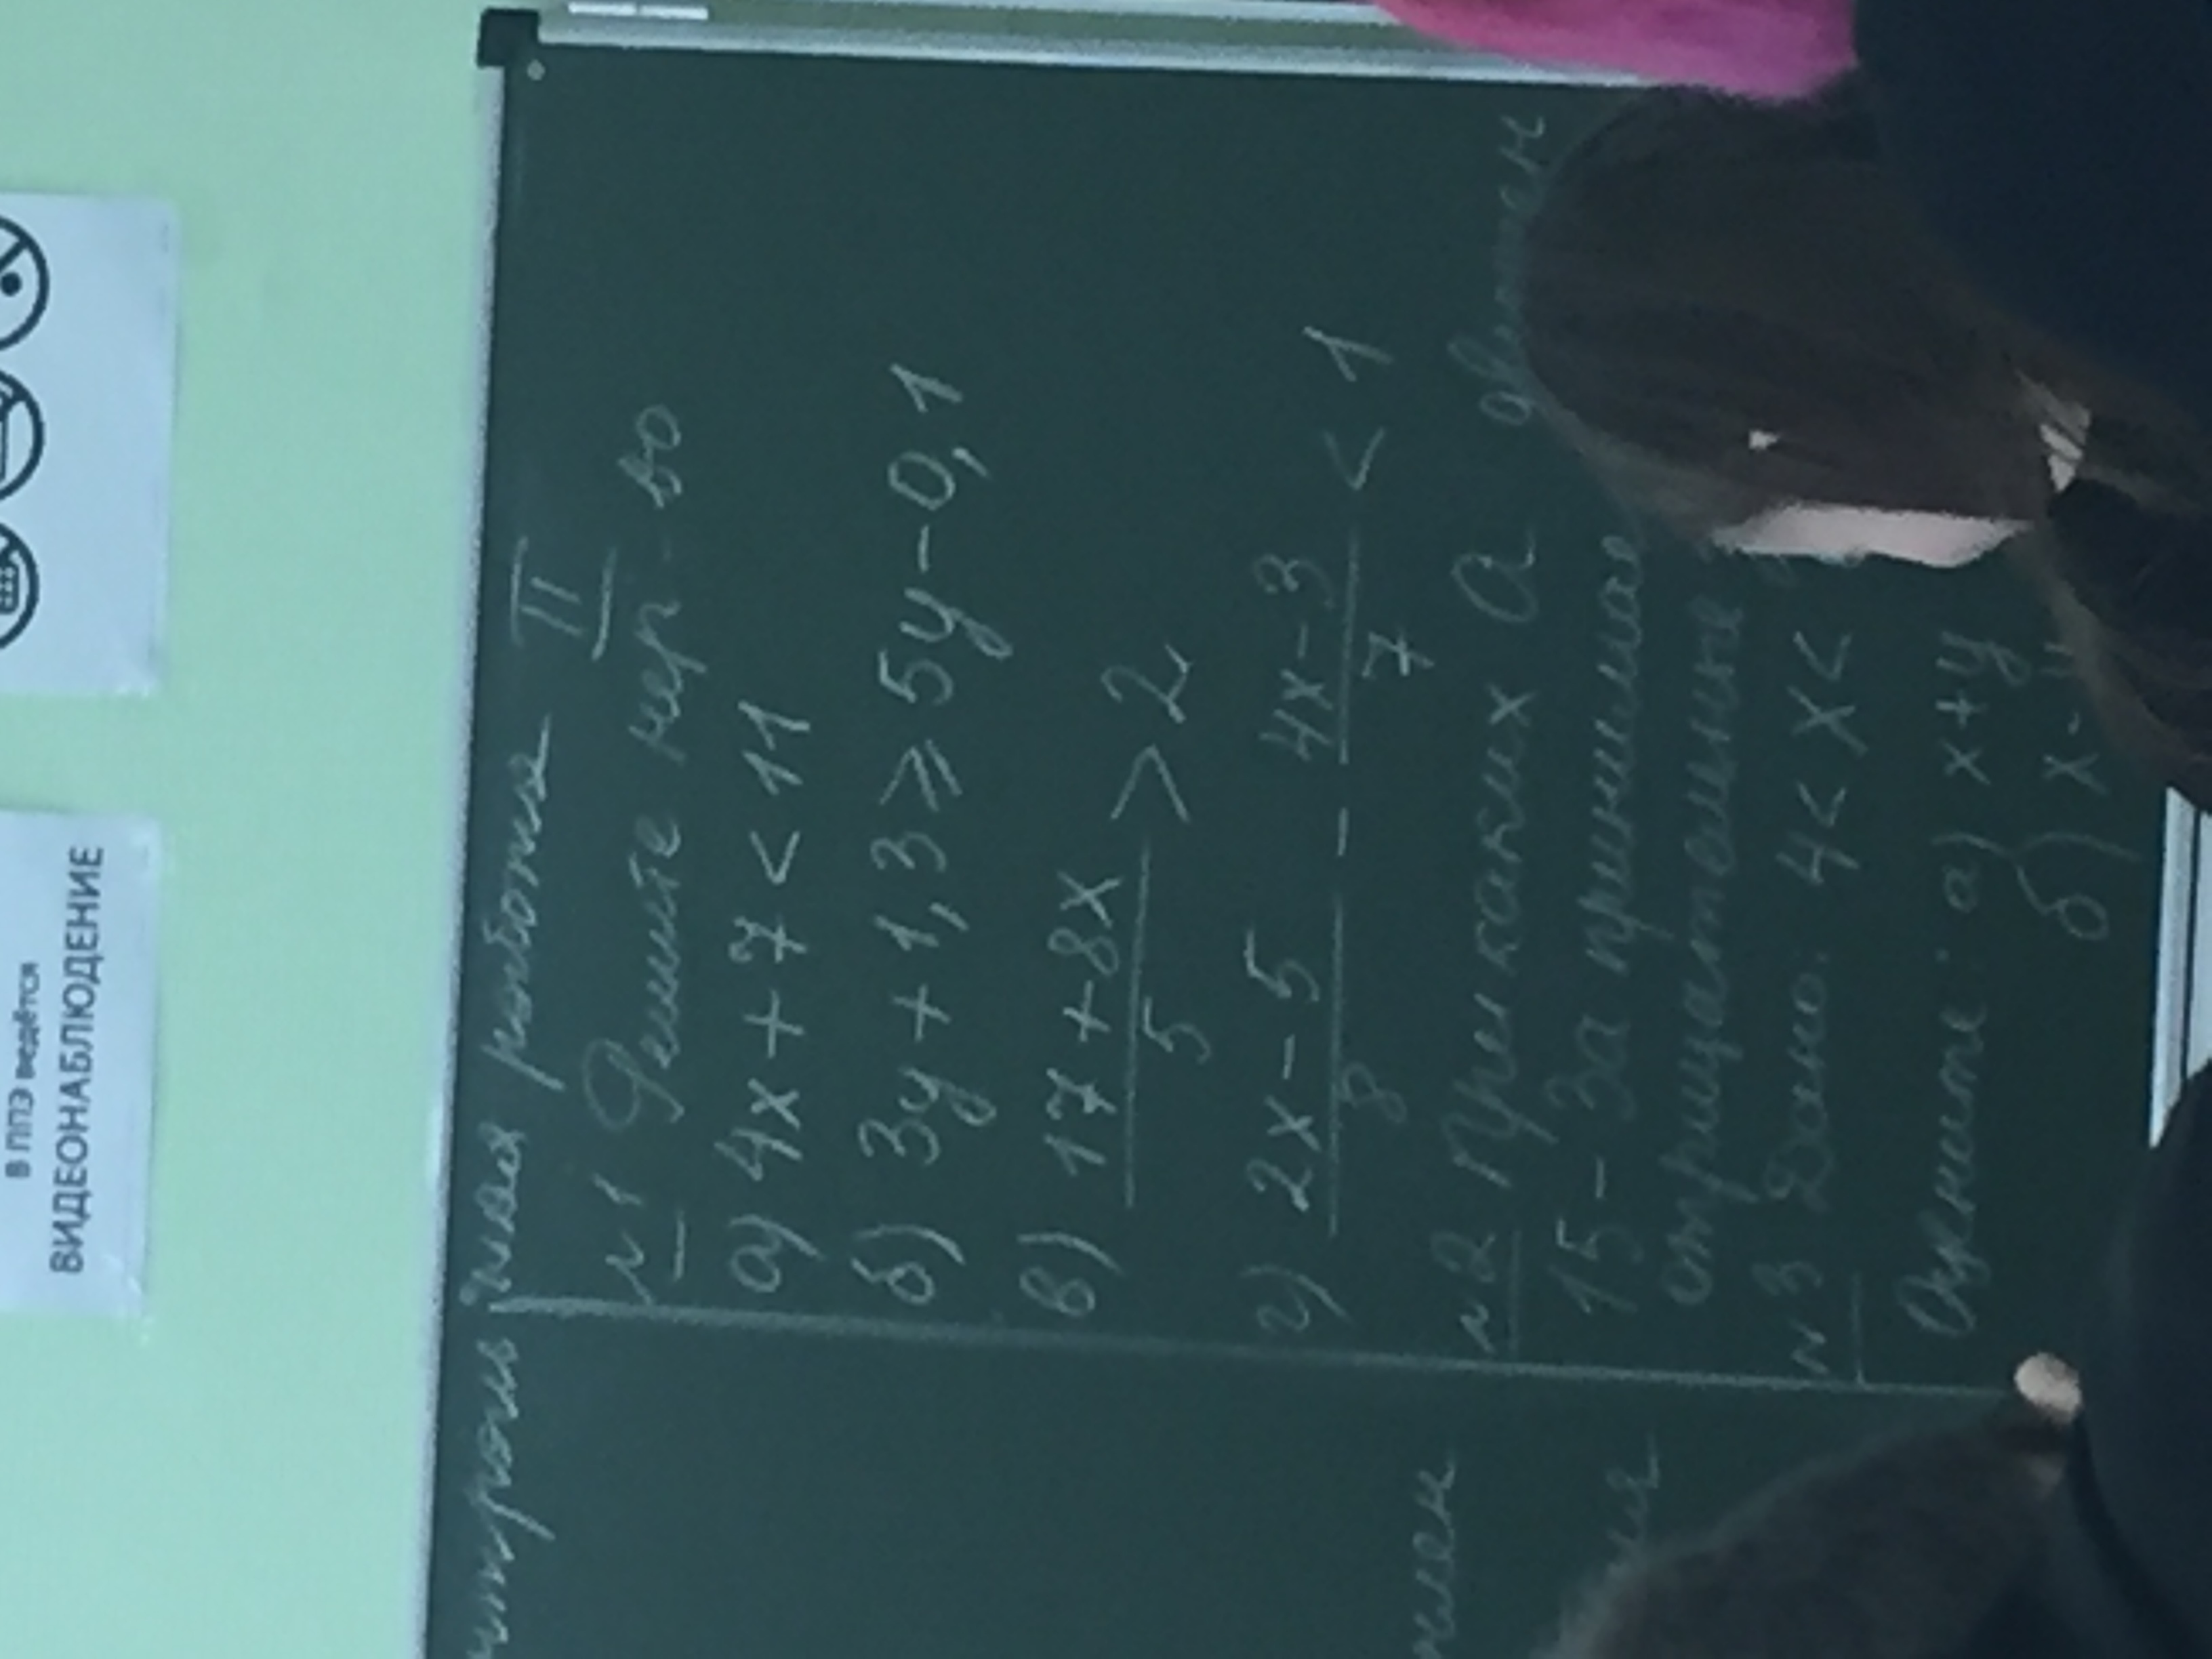 В ППЭ ведётся
ВИДЕОНАБЛЮДЕНИЕ
работа II
№1 Решите нер-во
а) 4x + 7 < 11
б) 3y + 1,3 ⩾ 5y - 0,1
в) 17 + 8x / 5 > 2
г) 2x - 5 / 8 - 4x - 3 / 7 < 1
№2 При каких а двучлен
15 - 3а принимае
отрицательные
№3 Дано: 4 < x <
Оцените: а) x + y
б) x - y
член